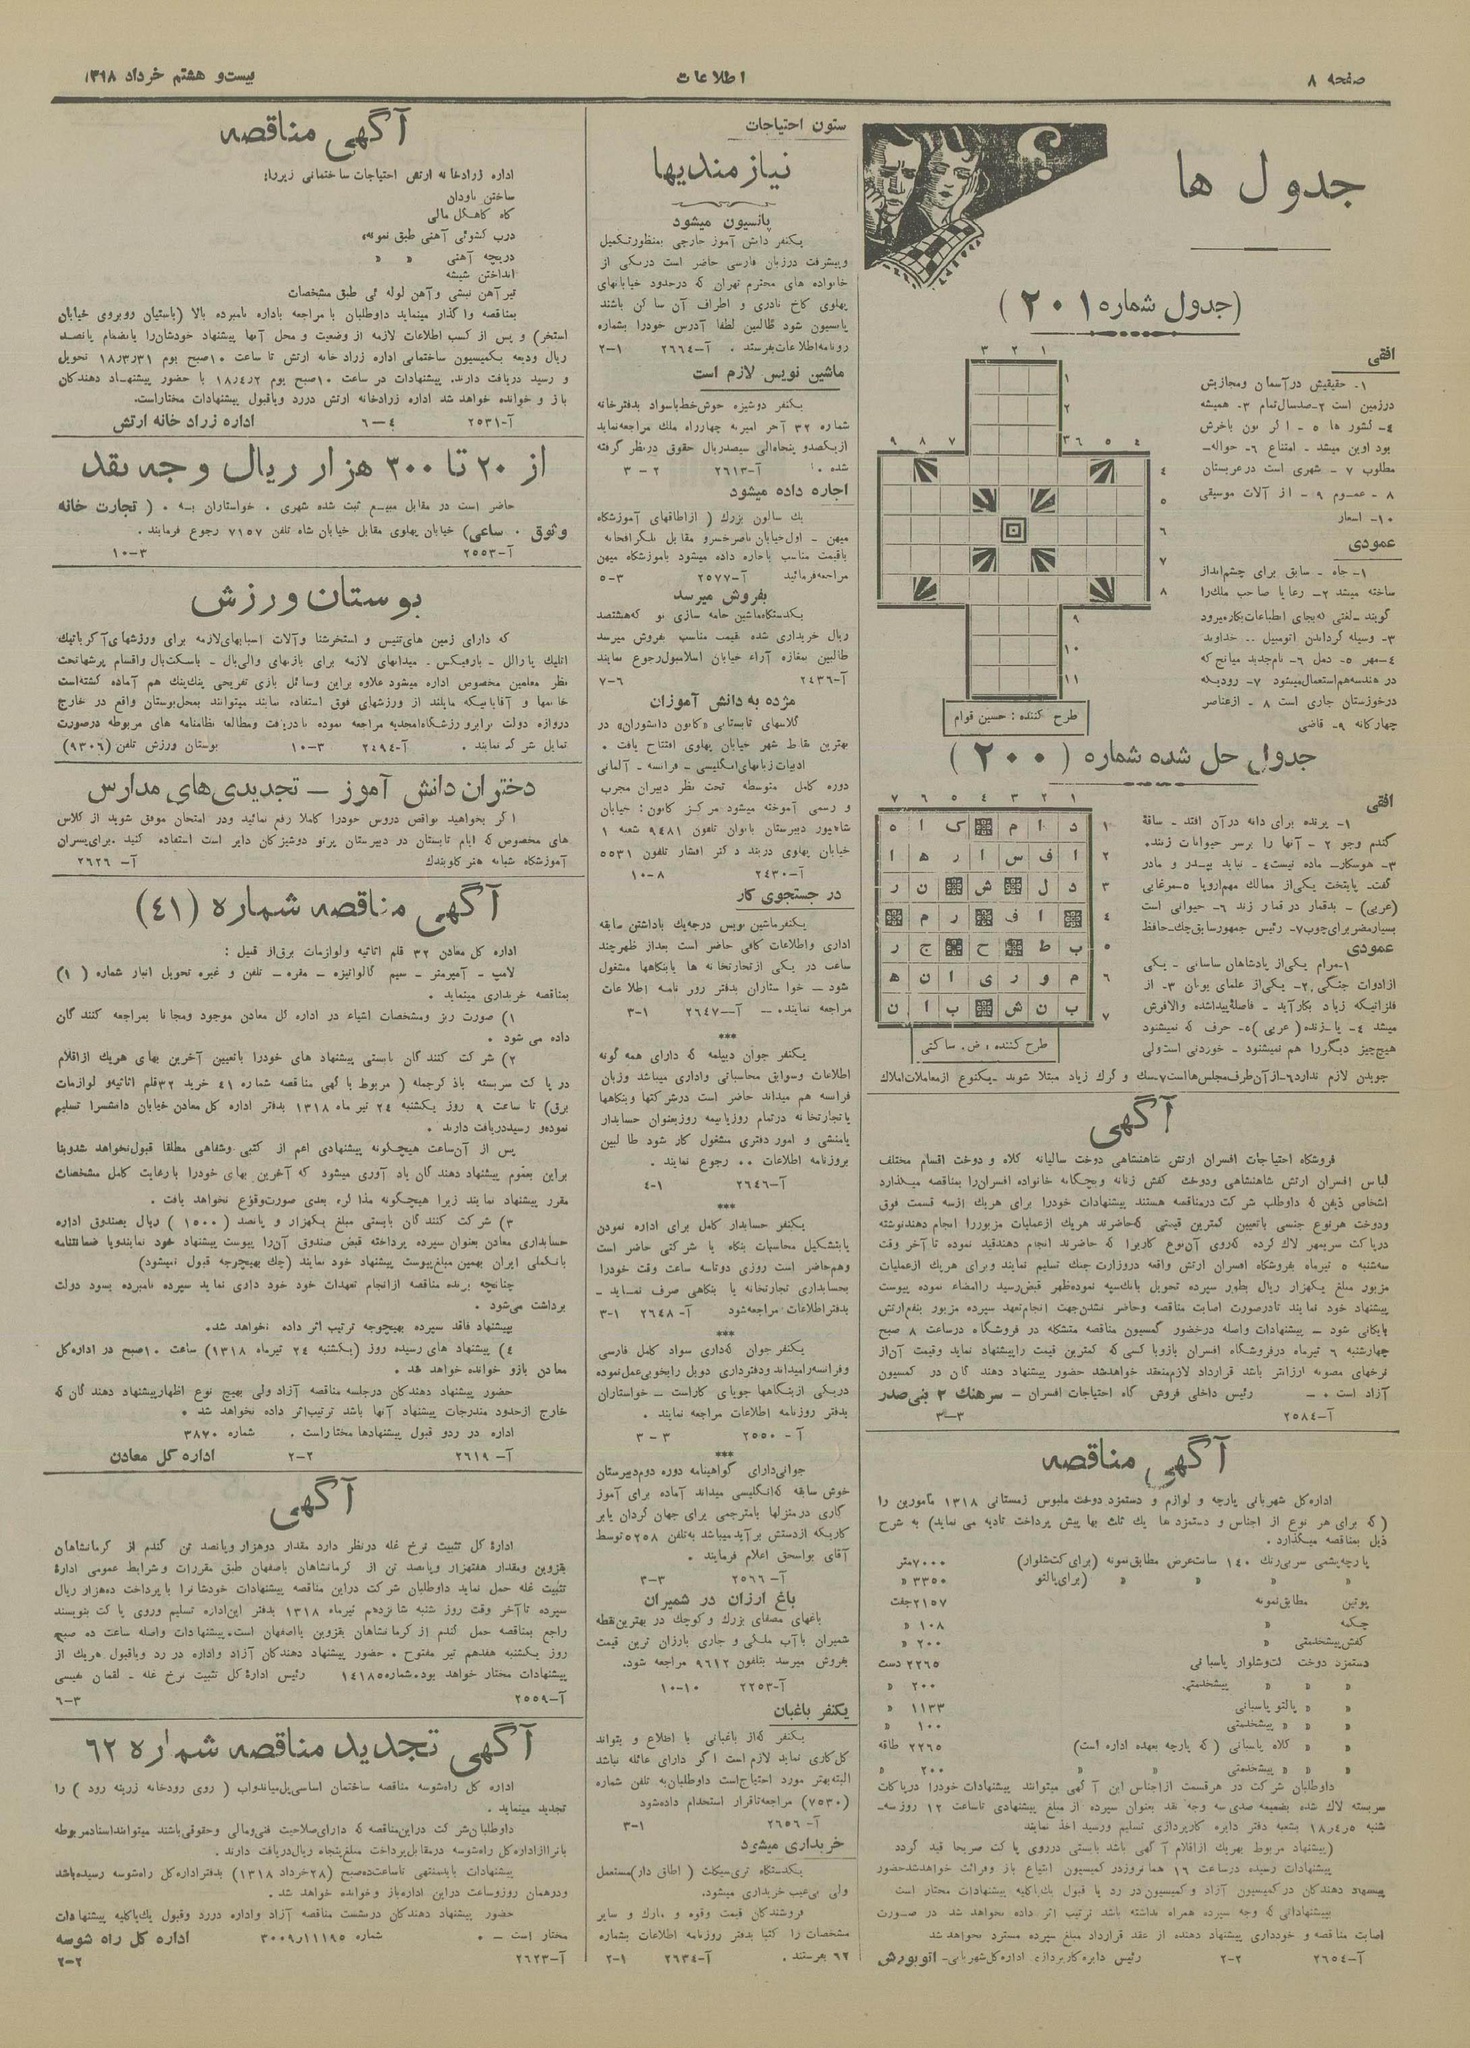 صفحه ۸
اطلاعات
بیست‌و هشتم خرداد ۱۳۱۸
جدول ها
(جدول شماره ۲۰۱)
افقی
۱- حقیقیش درآسمان ومجازیش
درزمین است ۲-صدسال‌تمام ۳- همیشه
بود اوین میشد - امتناع ۶- حواله-
مطلوب ۷ - شهری است درعربستان
۸ - عموم ۹ - از آلات موسیقی
۱۰- اسعار
عمودی
۱-جاه - سابق برای چشم‌انداز
ساخته میشد ۲- رعایا صاحب ملك‌را
گویند -لغتی که‌بجای انطباعات‌بکارمیرود
۳- وسیله گرداندن اتومبیل .. خداوند
۴-مهر ۵- دمل ۶- نام‌جدید میانج که
در هندسه‌هم‌استعمال‌میشود ۷- رودیکه
درخوزستان جاری است ۸ - ازعناصر
چهارگانه ۹- قاضی
طرح کننده : حسین قوام
جدول حل شده شماره (۲۰۰)
افقی
۱- پرنده برای دانه درآن افتد - ساقهٔ
گندم وجو ۲ - آنها را برسر حیوانات زنند.
۳- هوسکار- ماده نیست ۴- نباید بپدر و مادر
گفت- پایتخت یکی‌از ممالك مهم‌اروپا ۵-مرغابی
(عربی) - بدقمار درقمار زند ۶- حیوانی است
بسیارمضربرای‌چوب ۷- رئیس جمهورسابق‌چك-حافظ
عمودی
۱-مرام یکی‌از پادشاهان ساسانی - یکی
ازادوات جنگی ۲- یکی‌از علمای یونان ۳- از
فلزاتیکه زیاد بکارآید - فاصلهٔ‌پیداشده والافرش
میشد ۴- یا-زنده (عربی) ۵- حرف که نمیشنود
هیچ‌چیز دیگررا هم نمیشنود - خوردنی است‌ولی
جویدن لازم ندارد ۶-ازآن‌طرف‌مجلس‌هااست ۷-سك و گرك زیاد مبتلا شوند -یکنوع ازمعاملات‌املاك
طرح کننده : ض. ساکتی
آگهی
فروشگاه احتیاجات افسران ارتش شاهنشاهی دوخت سالیانه کلاه و دوخت اقسام مختلف
لباس افسران ارتش شاهنشاهی ودوخت کفش زنانه وبچگانه خانواده افسران‌را بمناقصه میگذارد
اشخاص ذیفن که داوطلب شرکت درمناقصه هستند پیشنهادات خودرا برای هریك ازسه قسمت فوق
ودوخت هرنوع جنسی باتعیین کمترین قیمتی که‌حاضرند هریك ازعملیات مزبوررا انجام دهندنوشته
درپاکت سربمهر لاك کرده که‌روی آن‌نوع کاریرا که حاضرند انجام دهندقید نموده تا آخر وقت
سه‌شنبه ۵ تیرماه بفروشگاه افسران ارتش واقعه دروزارت جنك تسلیم نمایند وبرای هریك ازعملیات
مزبور مبلغ یکهزار ریال بطور سپرده تحویل بانك‌سپه نموده‌ظهر قبض‌رسید راامضاء نموده پیوست
پیشنهاد خود نمایند تادرصورت اصابت مناقصه وحاضر نشدن‌جهت انجام‌تعهد سپرده مزبور بنفع‌ارتش
بایگانی شود - پیشنهادات واصله درحضور کمسیون مناقصه متشکله در فروشگاه درساعت ۸ صبح
چهارشنبه ۶ تیرماه درفروشگاه افسران بازوبا کسی‌که کمترین قیمت راپیشنهاد نماید وقیمت آن‌از
نرخهای مصوبه ارزانتر باشد قرارداد لازم‌منعقد خواهدشد حضور پیشنهاد دهند گان در کمسیون
آزاد است . - رئیس داخلی فروش گاه احتیاجات افسران - سرهنك ۲ بنی‌صدر
آ-۲۵۸۴ ۳-۳
آگهی مناقصه
اداره‌کل شهربانی پارچه و لوازم و دستمزد دوخت ملبوس زمستانی ۱۳۱۸ مأمورین را
(که برای هر نوع از اجناس و دستمزد ها یك ثلث بها پیش پرداخت تادیه می نماید) به شرح
ذیل بمناقصه میگذارد.
پارچه‌پشمی سربی‌رنك ۱۴۰ سانت‌عرض مطابق‌نمونه (برای کت‌شلوار) ۷۰۰۰متر
« « « « (برای‌پالتو ۳۳۵۰ «
پوتین مطابق‌نمونه ۲۱۵۷جفت
چکمه « ۱۰۸ «
کفش‌پیشخدمتی « ۲۰۰ «
دستمزد دوخت کت‌وشلوار پاسبانی ۲۲۶۵ دست
« « « پیشخدمتی ۲۰۰ «
« « پالتو پاسبانی ۱۱۳۳ «
« « « پیشخدمتی ۱۰۰ «
« « کلاه پاسبانی (که پارچه بعهده اداره است) ۲۲۶۵ طاقه
« « « پیشخدمتی « « ۲۰۰ «
داوطلبان شرکت در هرقسمت ازاجناس این آگهی میتوانند پیشنهادات خودرا درپاکات
سربسته لاك شده بضمیمه صدی‌سه وجه نقد بعنوان سپرده از مبلغ پیشنهادی تاساعت ۱۲ روز سه-
شنبه ۱۸٫۴٫۵ بشعبه دفتر دایره کارپردازی تسلیم ورسید اخذ نمایند
(پیشنهاد مربوط بهریك ازاقلام آگهی باشد بایستی درروی پاکت صریحا قید گردد
پیشنهادات رسیده درساعت ۱۶ همانروزدرکمیسیون ابتیاع باز وقرائت خواهدشدحضور
پیشنهاد دهندگان درکمیسیون آزاد وکمیسیون در رد یا قبول یك‌یاکلیه پیشنهادات مختار است
بپیشنهاداتی که وجه سپرده همراه نداشته باشد ترتیب اثر داده نخواهد شد در صورت
اصابت مناقصه و خودداری پیشنهاد دهنده از عقد قرارداد مبلغ سپرده مسترد نخواهدشد
آ-۲۶۵۴ ۲-۲ رئیس دایره کارپردازی اداره‌کل‌شهربانی- انوبورش
ستون احتیاجات
نیازمندیها
پانسیون میشود
یکنفر دانش آموز خارجی بمنظورتکمیل
وپیشرفت درزبان فارسی حاضر است دریکی از
خانواده های محترم تهران که درحدود خیابانهای
پهلوی کاخ نادری و اطراف آن ساکن باشند
پانسیون شود طالبین لطفا آدرس خودرا بشماره
روزنامه‌اطلاعات‌بفرستد . آ-۲۶۶۴ ۲-۱
ماشین نویس لازم است
یکنفر دوشیزه خوش‌خط‌باسواد بدفترخانه
شماره ۳۲ آخر امیریه چهارراه ملك مراجعه‌نماید
ازیکصدو پنجاه‌الی سیصدریال حقوق درنظر گرفته
شده . آ-۲۶۱۳ ۲-۳
اجاره داده میشود
یك سالون بزرك (ازاطاقهای آموزشگاه
میهن - اول‌خیابان ناصرخسرو مقابل تلگرافخانه
باقیمت مناسب باجاره داده میشود باموزشگاه میهن
مراجعه‌فرمائید آ-۲۵۷۷ ۳-۵
بفروش میرسد
یکدستگاه‌ماشین جامه سازی نو که‌هشتصد
ریال خریداری شده قیمت مناسب بفروش میرسد
طالبین بمغازه آراء خیابان اسلامبول‌رجوع نمایند
آ-۲۴۳۶ ۶-۷
مژده به دانش آموزان
کلاسهای تابستانی «کانون دانشوران» در
بهترین نقاط شهر خیابان پهلوی افتتاح یافت .
ادبیات زبانهای‌انگلیسی - فرانسه - آلمانی
دوره کامل متوسطه تحت نظر دبیران مجرب
و رسمی آموخته میشود مرکز کانون: خیابان
شاهپور دبیرستان بانوان تلفون ۹۴۸۱ شعبه ۱
خیابان پهلوی دربند دکتر افشار تلفون ۵۵۳۱
آ-۲۴۳۰ ۸-۱۰
در جستجوی کار
یکنفرماشین نویس درجه‌یك باداشتن سابقه
اداری واطلاعات کافی حاضر است بعداز ظهرچند
ساعت در یکی ازتجارتخانه ها یابنگاهها مشغول
شود - خواستاران بدفتر روزنامه اطلاعات
مراجعه نمایند.- آ-۲۶۴۷ ۱-۳
***
یکنفر جوان دیپلمه که دارای همه گونه
اطلاعات وسوابق محاسباتی واداری میباشد وزبان
فرانسه هم میداند حاضر است درشرکتها وبنگاهها
یاتجارتخانه درتمام روزیانیمه روزبعنوان حسابدار
یامنشی و امور دفتری مشغول کار شود طالبین
بروزنامه اطلاعات .. رجوع نمایند .
آ-۲۶۴۶ ۱-۴
***
یکنفر حسابدار کامل برای اداره نمودن
یابتشکیل محاسبات بنگاه یا شرکتی حاضر است
وهم‌حاضر است روزی دوتاسه ساعت وقت خودرا
بحسابداری تجارتخانه یا بنگاهی صرف نماید -
بدفتراطلاعات مراجعه‌شود آ-۲۶۴۸ ۱-۳
***
یکنفر جوان که‌داری سواد کامل فارسی
وفرانسه‌رامیداند ودفترداری دوبل رابخوبی‌عمل‌نموده
دریکی ازبنگاهها جویای کاراست - خواستاران
بدفتر روزنامه اطلاعات مراجعه نمایند .
آ-۲۵۵۰ ۳-۳
***
جوانی‌دارای گواهینامه دوره دوم‌دبیرستان
خوش سابقه که‌انگلیسی میداند آماده برای آموز
گاری درمنزلها یامترجمی برای جهان گردان یابر
کاریکه ازدستش برآیدمیباشد به‌تلفن ۵۲۵۸ توسط
آقای بواسحق اعلام فرمایند .
آ-۲۵۶۶ ۳-۳
باغ ارزان در شمیران
باغهای مصفای بزرك و کوچك در بهترین‌نقطه
شمیران باآب ملکی و جاری بارزان ترین قیمت
بفروش میرسد بتلفون ۹۶۱۲ مراجعه شود.
آ-۲۲۵۳ ۱۰-۱۰
یکنفر باغبان
یکنفر که‌از باغبانی با اطلاع و بتواند
گل‌کاری نماید لازم است اگر دارای عائله نباشد
البته‌بهتر مورد احتیاج‌است داوطلبان‌به تلفن شماره
(۷۵۳۰) مراجعه‌تاقرار استخدام داده‌شود
آ-۲۶۵۶ ۱-۳
خریداری میشود
یکدستگاه تری‌سیکلت (اطاق دار)مستعمل
ولی بی‌عیب خریداری میشود.
فروشندگان قیمت وقوه و مارك و سایر
مشخصات را کتبا بدفتر روزنامه اطلاعات بشماره
۶۲ بفرستند . آ-۲۶۳۴ ۲-۱
آگهی مناقصه
اداره زرادخانه ارتش احتیاجات ساختمانی زیررا:
ساختن ناودان
کاه گاهگل مالی
درب کشوئی آهنی طبق نمونه
دریچه آهنی « «
انداختن شیشه
تیرآهن نبشی وآهن لوله ئی طبق مشخصات
بمناقصه واگذار مینماید داوطلبان با مراجعه باداره نامبرده بالا (باستیان روبروی خیابان
استخر) و پس از کسب اطلاعات لازمه از وضعیت و محل آنها پیشنهاد خودشان‌را بانضمام پانصد
ریال ودیعه بکمیسیون ساختمانی اداره زرادخانه ارتش تا ساعت ۱۰صبح یوم ۱۸٫۳٫۳۱ تحویل
و رسید دریافت دارند. پیشنهادات در ساعت ۱۰صبح یوم ۱۸٫۴٫۲ با حضور پیشنهاد دهندگان
باز و خوانده خواهد شد اداره زرادخانه ارتش دررد ویاقبول پیشنهادات مختاراست.
آ-۲۵۳۱ ۴-۶ اداره زراد خانه ارتش
از ۲۰ تا ۳۰۰ هزار ریال وجه نقد
حاضر است در مقابل مبیع ثبت شده شهری . خواستاران به . (تجارت خانه
وثوق . ساعی) خیابان پهلوی مقابل خیابان شاه تلفن ۷۱۵۷ رجوع فرمایند .
آ-۲۵۵۳ ۳-۱۰
بوستان ورزش
که دارای زمین های‌تنیس و استخرشنا وآلات اسبابهای‌لازمه برای ورزشهای آکرباتیك
اتلتیك پارالل - بارفیکس- میدانهای لازمه برای بازیهای والی‌بال - باسکت‌بال واقسام پرشهاتحت
نظر معلمین مخصوص اداره میشود علاوه براین وسائل بازی تفریحی پنك‌پنك هم آماده گشته‌است
خانمها و آقایانیکه مایلند از ورزشهای فوق استفاده نمایند میتوانند بمحل‌بوستان واقع در خارج
دروازه دولت برابرورزشگاه‌امجدیه مراجعه نموده بادریافت ومطالعه نظامنامه های مربوطه درصورت
تمایل شرکت نمایند . آ-۲۴۹۴ ۳-۱۰ بوستان ورزش تلفن (۹۳۰۶)
دختران دانش آموز - تجدیدی‌های مدارس
اگر بخواهید نواقص دروس خودرا کاملا رفع نمائید ودر امتحان موفق شوید از کلاس
های مخصوص که ایام تابستان در دبیرستان پرتو دوشیزگان دایر است استفاده کنید .برای‌پسران
آموزشگاه شبانه هنر کاویندك آ-۲۶۲۶
آگهی مناقصه شماره (۴۱)
اداره کل معادن ۳۲ قلم اثاثیه ولوازمات برق‌از قبیل :
لامپ - آمپرمتر - سیم گالوانیزه - مقره - تلفن و غیره تحویل انبار شماره (۱)
بمناقصه خریداری مینماید .
۱) صورت ریز ومشخصات اشیاء در اداره کل معادن موجود ومجانا بمراجعه کنندگان
داده می شود .
۲) شرکت کنندگان بایستی پیشنهاد های خودرا باتعیین آخرین بهای هریك ازاقلام
در پاکت سربسته باذکرجمله (مربوط باگهی مناقصه شماره ۴۱ خرید ۳۲قلم اثاثیه‌و لوازمات
برق) تا ساعت ۹ روز یکشنبه ۲۴ تیر ماه ۱۳۱۸ بدفتر اداره کل معادن خیابان دانشسرا تسلیم
نموده‌و رسیددریافت دارند .
پس از آن‌ساعت هیچگونه پیشنهادی اعم از کتبی وشفاهی مطلقا قبول‌نخواهد شدوبنا
براین بعموم پیشنهاد دهندگان یاد آوری میشود که آخرین بهای خودرا بارعایت کامل مشخصات
مقرر پیشنهاد نمایند زیرا هیچگونه مذاکره بعدی صورت‌وقوع نخواهد یافت .
۳) شرکت کنندگان بایستی مبلغ یکهزار و پانصد (۱۵۰۰) ریال بصندوق اداره
حسابداری معادن بعنوان سپرده پرداخته قبض صندوق آن‌را پیوست پیشنهاد خود نمایندویا ضمانتنامه
بانك‌ملی ایران بهمین مبلغ‌پیوست پیشنهاد خود نمایند (چك بهیچوجه قبول نمیشود)
چنانچه برنده مناقصه ازانجام تعهدات خود خود داری نماید سپرده نامبرده بسود دولت
برداشت می‌شود .
بپیشنهاد فاقد سپرده بهیچوجه ترتیب اثر داده نخواهد شد.
۴) پیشنهاد های رسیده روز (یکشنبه ۲۴ تیرماه ۱۳۱۸) ساعت ۱۰صبح در اداره‌کل
معادن بازو خوانده خواهد شد .
حضور پیشنهاد دهندگان درجلسه مناقصه آزاد ولی بهیچ نوع اظهارپیشنهاد دهندگان که
خارج ازحدود مندرجات پیشنهاد آنها باشد ترتیب‌اثر داده نخواهد شد .
اداره در ردو قبول پیشنهادها مختاراست . شماره ۳۸۷۰
آ-۲۶۱۹ ۲-۲ اداره کل معادن
آگهی
ادارهٔ کل تثبیت نرخ غله درنظر دارد مقدار دوهزار وپانصد تن گندم از کرمانشاهان
بقزوین ومقدار هفتهزار وپانصد تن از کرمانشاهان باصفهان طبق مقررات و شرایط عمومی ادارهٔ
تثبیت غله حمل نماید داوطلبان شرکت دراین مناقصه پیشنهادات خودشانرا باپرداخت ده‌هزار ریال
سپرده تاآخر وقت روز شنبه شانزدهم تیرماه ۱۳۱۸ بدفتر این‌اداره تسلیم وروی پاکت بنویسند
راجع بمناقصه حمل گندم از کرمانشاهان بقزوین یااصفهان است.پیشنهادات واصله ساعت ده صبح
روز یکشنبه هفدهم تیر مفتوح . حضور پیشنهاد دهندگان آزاد واداره در رد ویاقبول هریك از
پیشنهادات مختار خواهد بود.شماره ۱۴۱۸۵ رئیس ادارهٔ‌کل تثبیت نرخ غله - لقمان نفیسی
آ-۲۵۵۹ ۳-۶
آگهی تجدید مناقصه شماره ۶۲
اداره کل راه‌شوسه مناقصه ساختمان اساسی‌پل‌میاندواب (روی رودخانه زرینه رود) را
تجدید مینماید .
داوطلبان‌شرکت دراین‌مناقصه که دارای‌صلاحیت فنی‌ومالی وحقوقی‌باشند میتوانند اسنادمربوطه
بانراازاداره‌کل راه‌شوسه درمقابل‌پرداخت مبلغ‌پنجاه ریال‌دریافت دارند .
پیشنهادات بایدمنتهی تاساعت‌ده‌صبح (۲۸خرداد ۱۳۱۸) بدفتراداره‌کل راه‌شوسه رسیده‌باشد
ودرهمان روزوساعت دراین اداره‌باز وخوانده خواهد شد .
حضور پیشنهاد دهندگان درنشست مناقصه آزاد واداره دررد وقبول یك‌یاکلیه پیشنهادات
مختار است - . شماره ۳۰۰۹٫۱۱۱۹۵ اداره کل راه شوسه
آ-۲۶۲۳ ۲-۲